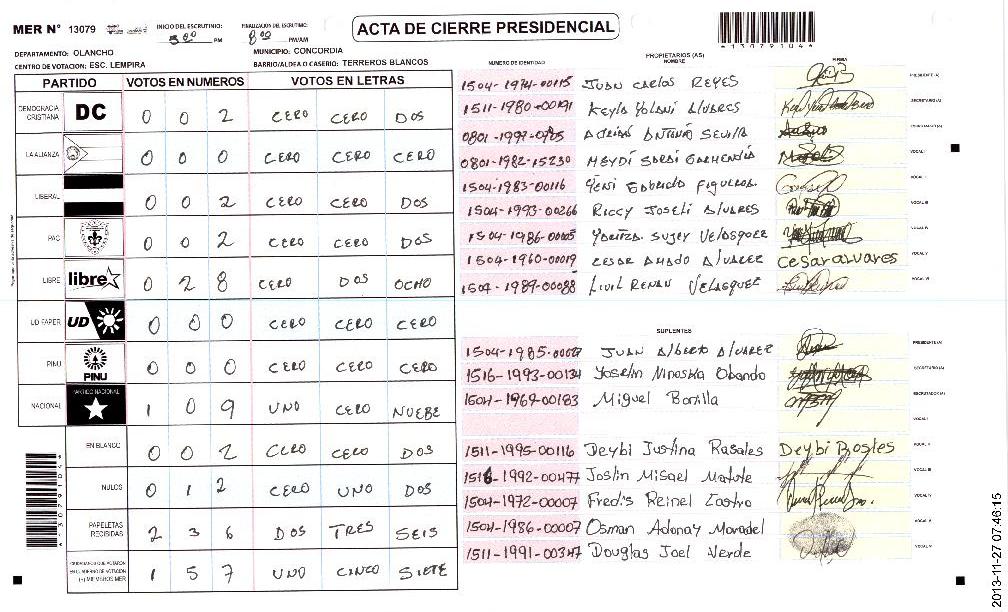 MER N° 13079
INICIO DEL ESCRUTINIO: 5:00 PM
FINALIZACION DEL ESCRUTINIO: 8:00 PM/AM
ACTA DE CIERRE PRESIDENCIAL
*13079104*
DEPARTAMENTO: OLANCHO
MUNICIPIO: CONCORDIA
CENTRO DE VOTACION: ESC. LEMPIRA
BARRIO/ALDEA O CASERIO: TERREROS BLANCOS
PARTIDO VOTOS EN NUMEROS VOTOS EN LETRAS
DEMOCRACIA CRISTIANA DC 0 0 2 CERO CERO DOS
LA ALIANZA 0 0 0 CERO CERO CERO
LIBERAL 0 0 2 CERO CERO DOS
PAC 0 0 2 CERO CERO DOS
LIBRE libre 0 2 8 CERO DOS OCHO
UD FAPER UD 0 0 0 CERO CERO CERO
PINU PINU 0 0 0 CERO CERO CERO
NACIONAL PARTIDO NACIONAL 1 0 9 UNO CERO NUEBE
EN BLANCO 0 0 2 CERO CERO DOS
NULOS 0 1 2 CERO UNO DOS
PAPELETAS RECIBIDAS 2 3 6 DOS TRES SEIS
CIUDADANOS QUE VOTARON EN EL CUADERNO DE VOTACION (+) MIEMBROS MER 1 5 7 UNO CINCO SIETE
PROPIETARIOS (AS)
NUMERO DE IDENTIDAD NOMBRE FIRMA
1504-1974-00115 JUAN CARLOS REYES PRESIDENTE (A)
1511-1980-00191 Keyla Yolani Alvares SECRETARIO (A)
ADRIAN ANTONIO SEVILLA ESCRUTADOR (A)
0801-1982-15230 HEYDI VOCAL I
1504-1983-00116 Yeni FIGUEROA VOCAL II
1504-1993-00266 RICCY JOSELI ALVARES VOCAL III
1504-1986-00005 SUJEY VELASQUEZ VOCAL IV
1504-1960-00019 CESAR AMADO ALVAREZ cesar alvares VOCAL V
1504-1989-00088 RENAN VELASQUEZ VOCAL VI
SUPLENTES
1504-1985-00027 JUAN Alberto ALVAREZ PRESIDENTE (A)
1516-1993-00134 Yoselin Ninoska Obando SECRETARIO (A)
1504-1969-00183 Miguel Bonilla ESCRUTADOR (A)
VOCAL I
1511-1995-00116 Deybi Justina Rosales Deybi Rosales VOCAL II
1992-00477 Joslin Misael Matute VOCAL III
1504-1972-00007 Fredis Reinel Castro VOCAL IV
1504-1986-00007 Osman Adonay VOCAL V
1511-1991-00347 Douglas Joel Verde VOCAL VI
*13079104*
2013-11-27 07:46:15